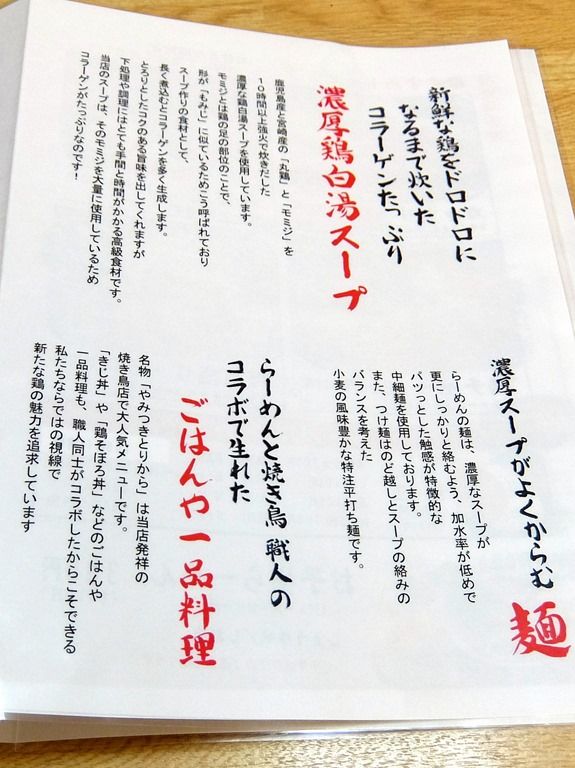 新鮮な鶏をドロドロに
なるまで炊いた
コラーゲンたっぷり
濃厚鶏白湯スープ
鹿児島産と宮崎産の「丸鶏」と「モミジ」を
10時間以上強火で炊きだした
濃厚な鶏白湯スープを使用しています。
モミジとは鶏の足の部位のことで、
形が「もみじ」に似ているためこう呼ばれており
スープ作りの食材として、
長く煮込むとコラーゲンを多く生成します。
とろりとしたコクのある旨味を出してくれますが
下処理や調理にはとても手間と時間がかかる高級食材です。
当店のスープは、そのモミジを大量に使用しているため
コラーゲンがたっぷりなのです!
濃厚スープがよくからむ
麺
らーめんの麺は、濃厚なスープが
更にしっかりと絡むよう、加水率が低めで
パツっとした触感が特徴的な
中細麺を使用しております。
また、つけ麺はのど越しとスープの絡みの
バランスを考えた
小麦の風味豊かな特注平打ち麺です。
らーめんと焼き鳥 職人の
コラボで生れた
ごはんや一品料理
名物「やみつきとりから」は当店発祥の
焼き鳥店で大人気メニューです。
「きじ丼」や「鶏そぼろ丼」などのごはんや
一品料理も、職人同士がコラボしたからこそできる
私たちならではの視線で
新たな鶏の魅力を追求しています